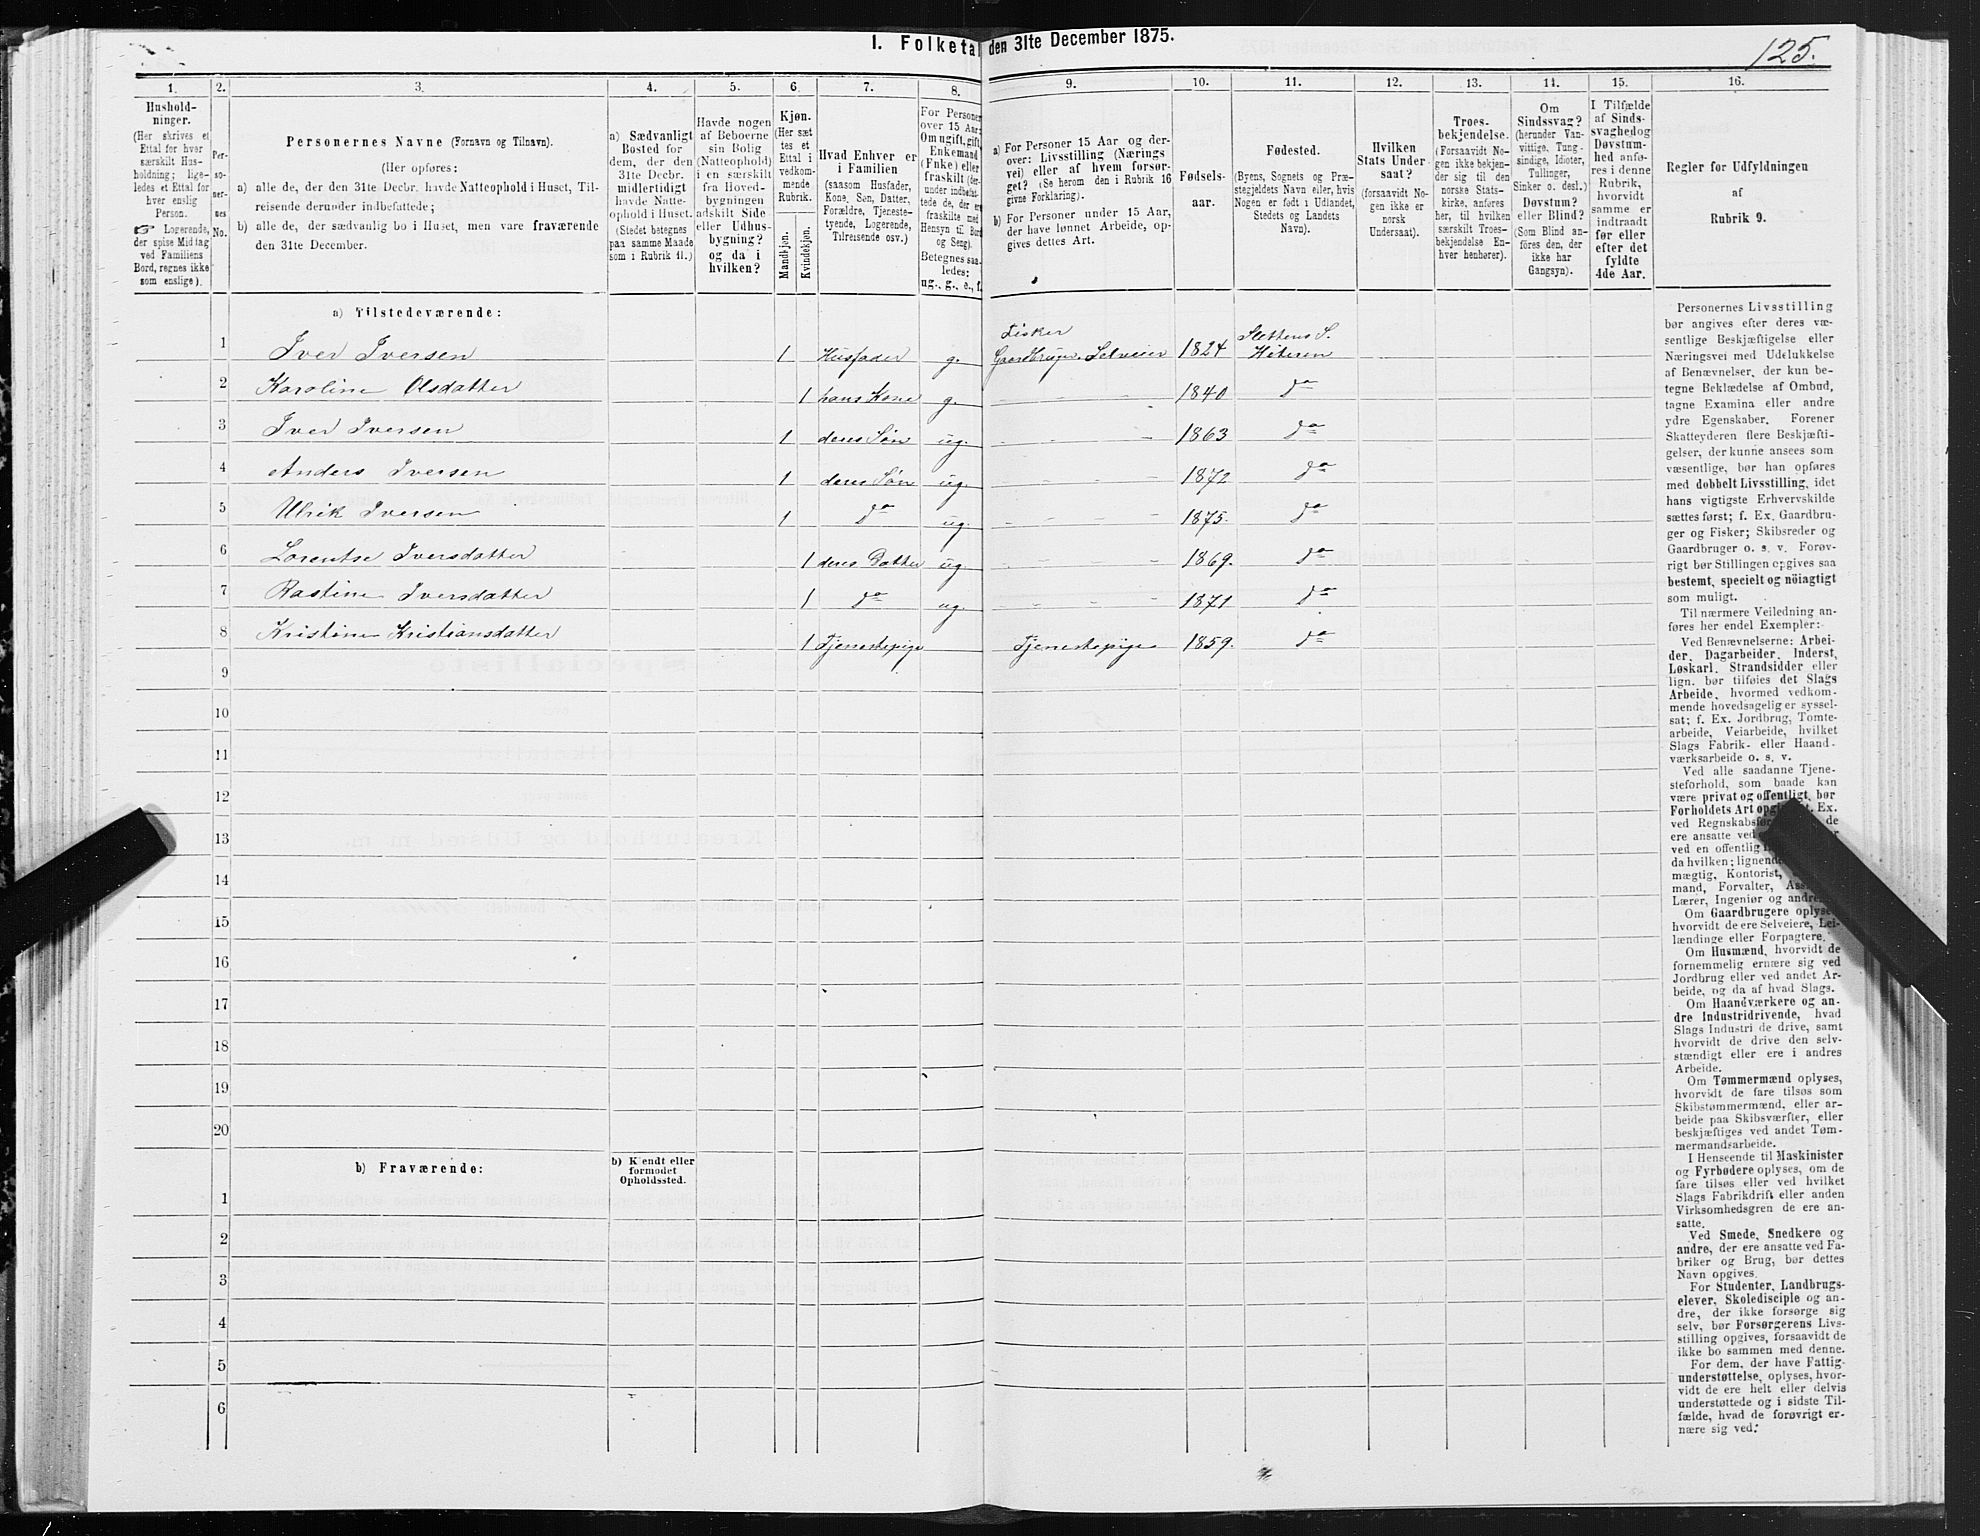 I. Folketal den 31te December 1875.
125.
1.
2.
3.
4.
5.
6.
7.
8.
9.
10.
11.
12.
13.
14.
15.
16.
Hushold-
ninger.
(Her skrives et
Ettal for hver
særskilt Hus-
holdning; lige-
ledes et Ettal for
hver enslig
Person.
☞ Logerende,
der spise Middag
ved Familiens
Bord, regnes ikke
som enslige).
Per-
so-
ner-
nes
No.
Personernes Navne (Fornavn og Tilnavn).
(Her opføres:
a) alle de, der den 31te Decbr. havde Natteophold i Huset, Til-
reisende derunder indbefattede;
b) alle de, der sædvanlig bo i Huset, men vare fraværende
den 31te December.
a) Sædvanligt
Bosted for
dem, der den
31te Decbr.
midlertidigt
havde Natte-
ophold i Huset.
(Stedet betegnes
paa samme Maade
som i Rubrik 11.)
Havde nogen
af Beboerne
sin Bolig
(Natteophold)
i en særskilt
fra Hoved-
bygningen
adskilt Side-
eller Udhus-
bygning?
og da i
hvilken?
Kjøn.
(Her sæt-
tes et
Ettal i
vedkom-
mende
Rubrik.
Mandkjøn.
Kvindekjøn.
Hvad Enhver er
i Familien
(saasom Husfader,
Kone, Søn, Datter,
Forældre, Tjeneste-
tyende, Logerende,
Tilreisende osv.)
For Personer
over 15 Aar:
Om ugift, gift,
Enkemand
(Enke) eller
fraskilt (der-
under indbefat-
tede de, der ere
fraskilte med
Hensyn til Bord
og Seng).
Betegnes saa-
ledes:
ug., g., e., f.
a) For Personer 15 Aar og der-
over: Livsstilling (Nærings-
vei) eller af hvem forsør-
get? (Se herom den i Rubrik 16
givne Forklaring).
b) For Personer under 15 Aar,
der have lønnet Arbeide, op-
gives dettes Art.
Fødsels-
aar.
Fødested.
(Byens, Sognets og Præ-
stegjeldets Navn eller, hvis
Nogen er født i Udlandet,
Stedets og Landets
Navn).
Hvilken
Stats Under-
saat?
(forsaavidt No-
gen ikke er
norsk
Undersaat).
Troes-
bekjendelse.
(Forsaavidt No-
gen ikke bekjen-
der sig til den
norske Stats-
kirke, anføres
her, til hvilken
særskilt Troes-
bekjendelse En-
hver henhører).
Om
Sindssvag?
(herunder Van-
vittige, Tung-
sindige, Idioter,
Tullinger,
Sinker o. desl.)
Døvstum?
eller Blind?
(Som Blind an-
føres den, der
ikke har
Gangsyn).
I Tilfælde
af Sinds-
svaghed og
Døvstum-
hed anfø-
res i denne
Rubrik,
hvorvidt
samme er
indtraadt
før eller
efter det
fyldte
4de Aar.
Regler for Udfyldningen
af
Rubrik 9.
a) Tilstedeværende:
1 Iver Iversen 1 Husfader g. Fisker Gaardbruger Selveier 1824 Slettens S. Hiteren
2 Karoline Olsdatter 1 hans Kone g. 1840 do
3 Iver Iversen 1 deres Søn ug. 1863 do
4 Anders Iversen 1 deres Søn ug. 1872 do
5 Ulrik Iversen 1 do ug. 1875. do
6 Lorentse Iversdatter 1 deres Datter ug. 1869. do
7 Rastine Iversdatter 1 do ug. 1871 do
8 Kristine Kristiansdatter 1 Tjenestepige Tjenestepige 1859. do
9
10
11
12
13
14
15
16
17
18
19
20
b) Fraværende:
b) Kjendt eller
formodet
Opholdssted.
1
2
3
4
5
6
Personernes Livsstilling
bør angives efter deres væ-
sentlige Beskjæftigelse eller
Næringsvei med Udelukkelse
af Benævnelser, der kun be-
tegne Beklædelse af Ombud,
tagne Examina eller andre
ydre Egenskaber. Forener
Skatteyderen flere Beskjæfti-
gelser, der kunne ansees som
væsentlige, bør han opføres
med dobbelt Livsstilling, idet
hans vigtigste Erhvervskilde
sættes først; f. Ex. Gaardbru-
ger og Fisker; Skibsreder og
Gaardbruger o. s. v. Forøv-
rigt bør Stillingen opgives saa
bestemt, specielt og nöiagtigt
som muligt.
Til nærmere Veiledning an-
føres her endel Exempler:
Ved Benævnelserne: Arbei-
der, Dagarbeider, Inderst,
Løskarl, Strandsidder eller
lign. bør tilføies det Slags
Arbeide, hvormed vedkom-
mende hovedsagelig er syssel-
sat; f. Ex. Jordbrug, Tomte-
arbeide, Veiarbeide, hvilket
Slags Fabrik- eller Haand-
værksarbeide o. s. v.
Ved alle saadanne Tjene-
steforhold, som baade kan
være privat og offentligt, bør
Forholdets Art Ex.
ved de
ere ansatte ved
ved en offentlig
da hvilken; lignende
mægtig, Kontorist,
mand, Forvalter,
Lærer, Ingeniør og andre.
Om Gaardbrugere oplyses,
hvorvidt de ere Selveiere, Lei-
lændinge eller Forpagtere.
Om Husmænd, hvorvidt de
fornemmelig ernære sig ved
Jordbrug eller ved andet Ar-
beide, og da af hvad Slags.
Om Haandværkere og an-
dre Industridrivende, hvad
Slags Industri de drive, samt
hvorvidt de drive den selv-
stændigt eller ere i andres
Arbeide.
Om Tømmermænd oplyses,
hvorvidt de fare tilsøs som
Skibstømmermænd, eller ar-
beide paa Skibsværfter, eller
beskjæftiges ved andet Tøm-
mermandsarbeide.
I Henseende til Maskinister
og Fyrbødere oplyses, om de
fare tilsøs eller ved hvilket
Slags Fabrikdrift eller anden
Virksomhedsgren de ere an-
satte.
Ved Smede, Snedkere og
andre, der ere ansatte ved Fa-
briker og Brug, bør dettes
Navn opgives.
For Studenter, Landbrugs-
elever, Skoledisciple og an-
dre, der ikke forsørge sig
selv, bør Forsørgerens Livs-
stilling opgives, forsaavidt de
ikke bo sammen med denne.
For dem, der have Fattig-
understøttelse, oplyses, hvor-
vidt de ere helt eller delvis
understøttede og i sidste Til-
fælde, hvad de forøvrigt er-
nære sig ved.